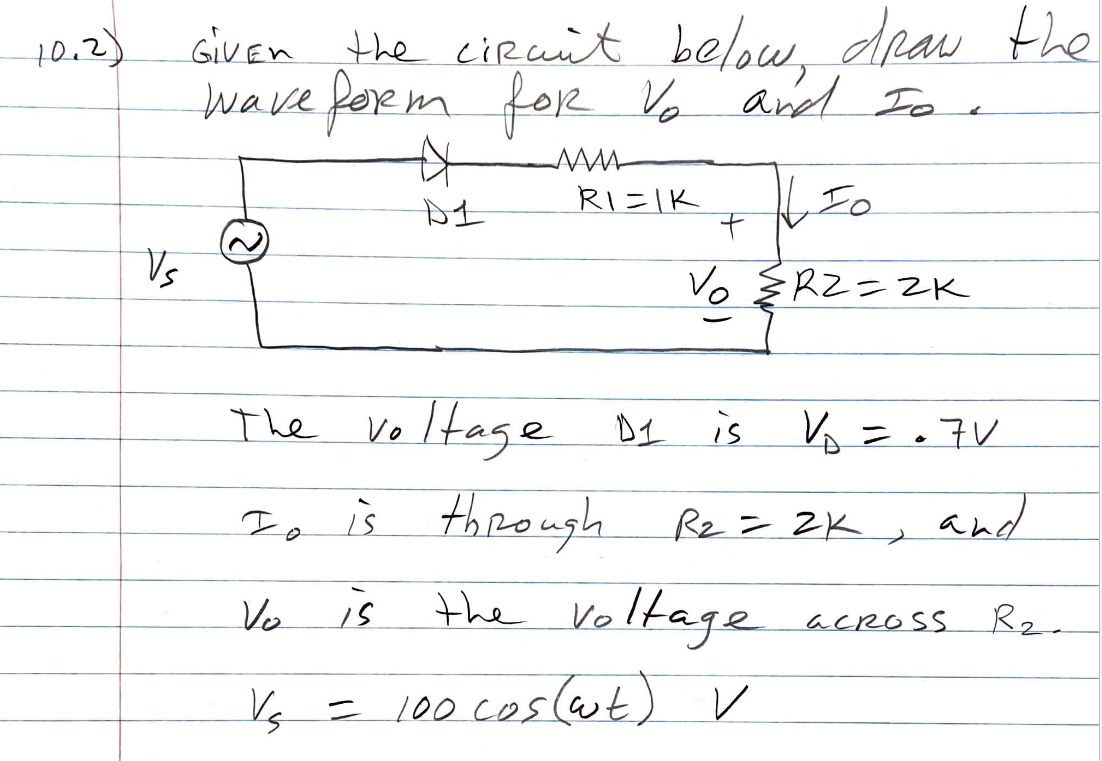 10.2) GiVEn the ciRcuit below, draw the
waveform foR Vo and Io.
D1
R1=1K
+
Io
Vs
Vo
R2=2K
-
The voltage D1 is VD = .7V
Io is thRough R2 = 2K, and
Vo is the voltage acRoss R2.
Vs = 100 cos(ωt) V